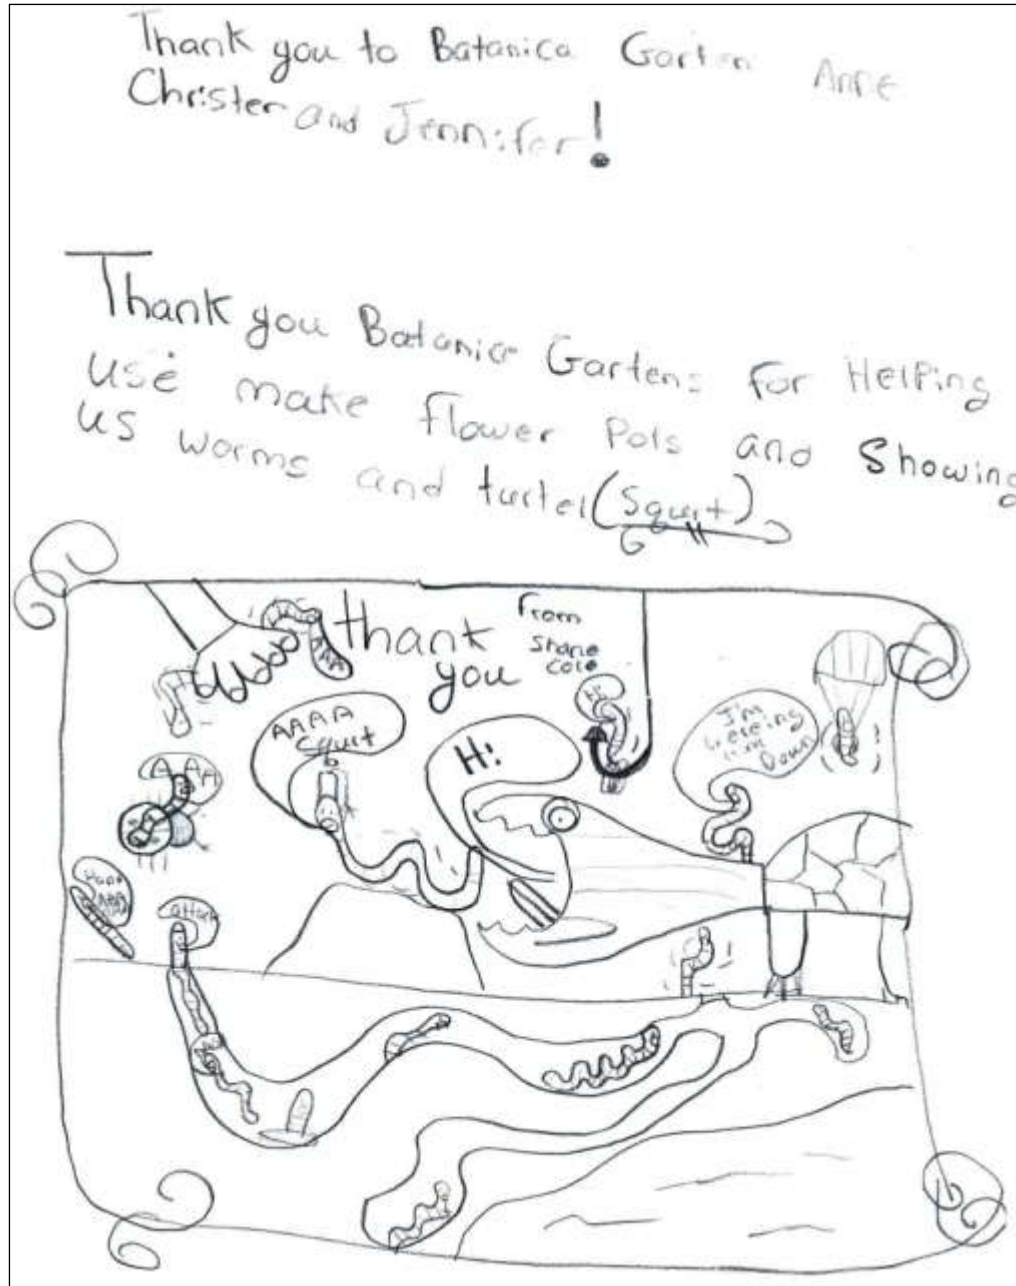 Thank you to Batanica Garten Anne
Christer and Jennifer!
Thank you Batanica Gartens for Helping
use make flower Pots and Showing
us worms and turtel (Squrt)
thank
you
From
Shane
Cole
Hi
AAAA
Squrt
Hi
I'm
him
Down
A AA
AAA
attack
AA